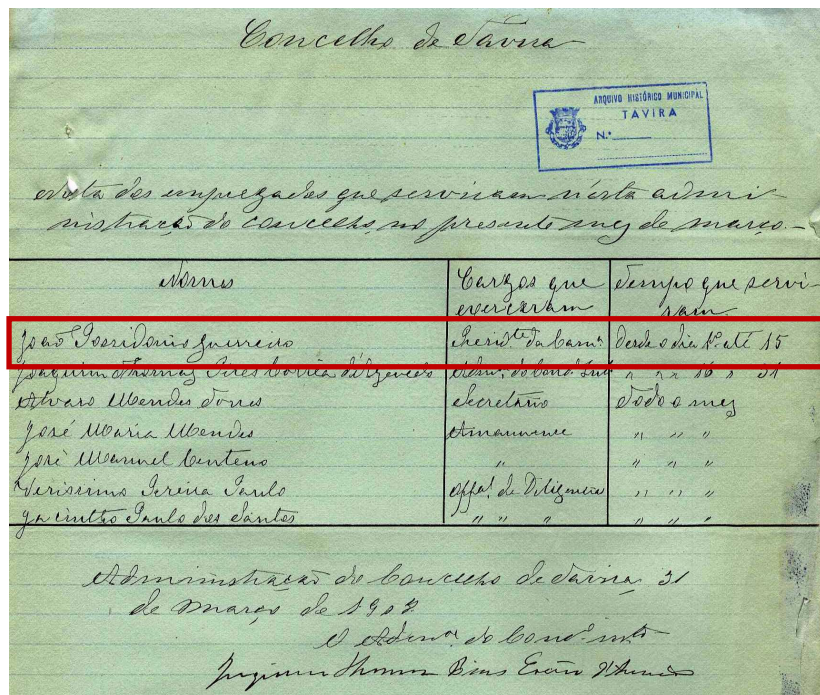 Concelho de Tavira
ARQUIVO HISTÓRICO MUNICIPAL
TAVIRA
N.º
Nota dos empregados que serviram n'esta admi-
nistração do concelho, no presente mez de março.-
Nomes
Cargos que exerceram
Tempo que servi-
ram
João Possidonio Guerreiro Presid.te da Cam.a Desde o dia 1º até 15
Joaquim Thomaz Pires Corrêa d'Azevedo Adm.or do Conc.º " " " 16 " 31
Alvaro Mendes Torres Secretario Todo o mez
José Maria Mendes Amanuense " " "
José Manuel Centeno " " " "
Verissimo Pereira Paulo Offal. de Diligencias " " "
Jacintho Paulo dos Santos " " " " " "
Administração do Concelho de Tavira 31
de Março de 1902
O Adm.or do Conc.º
Joaquim Thomaz Pires